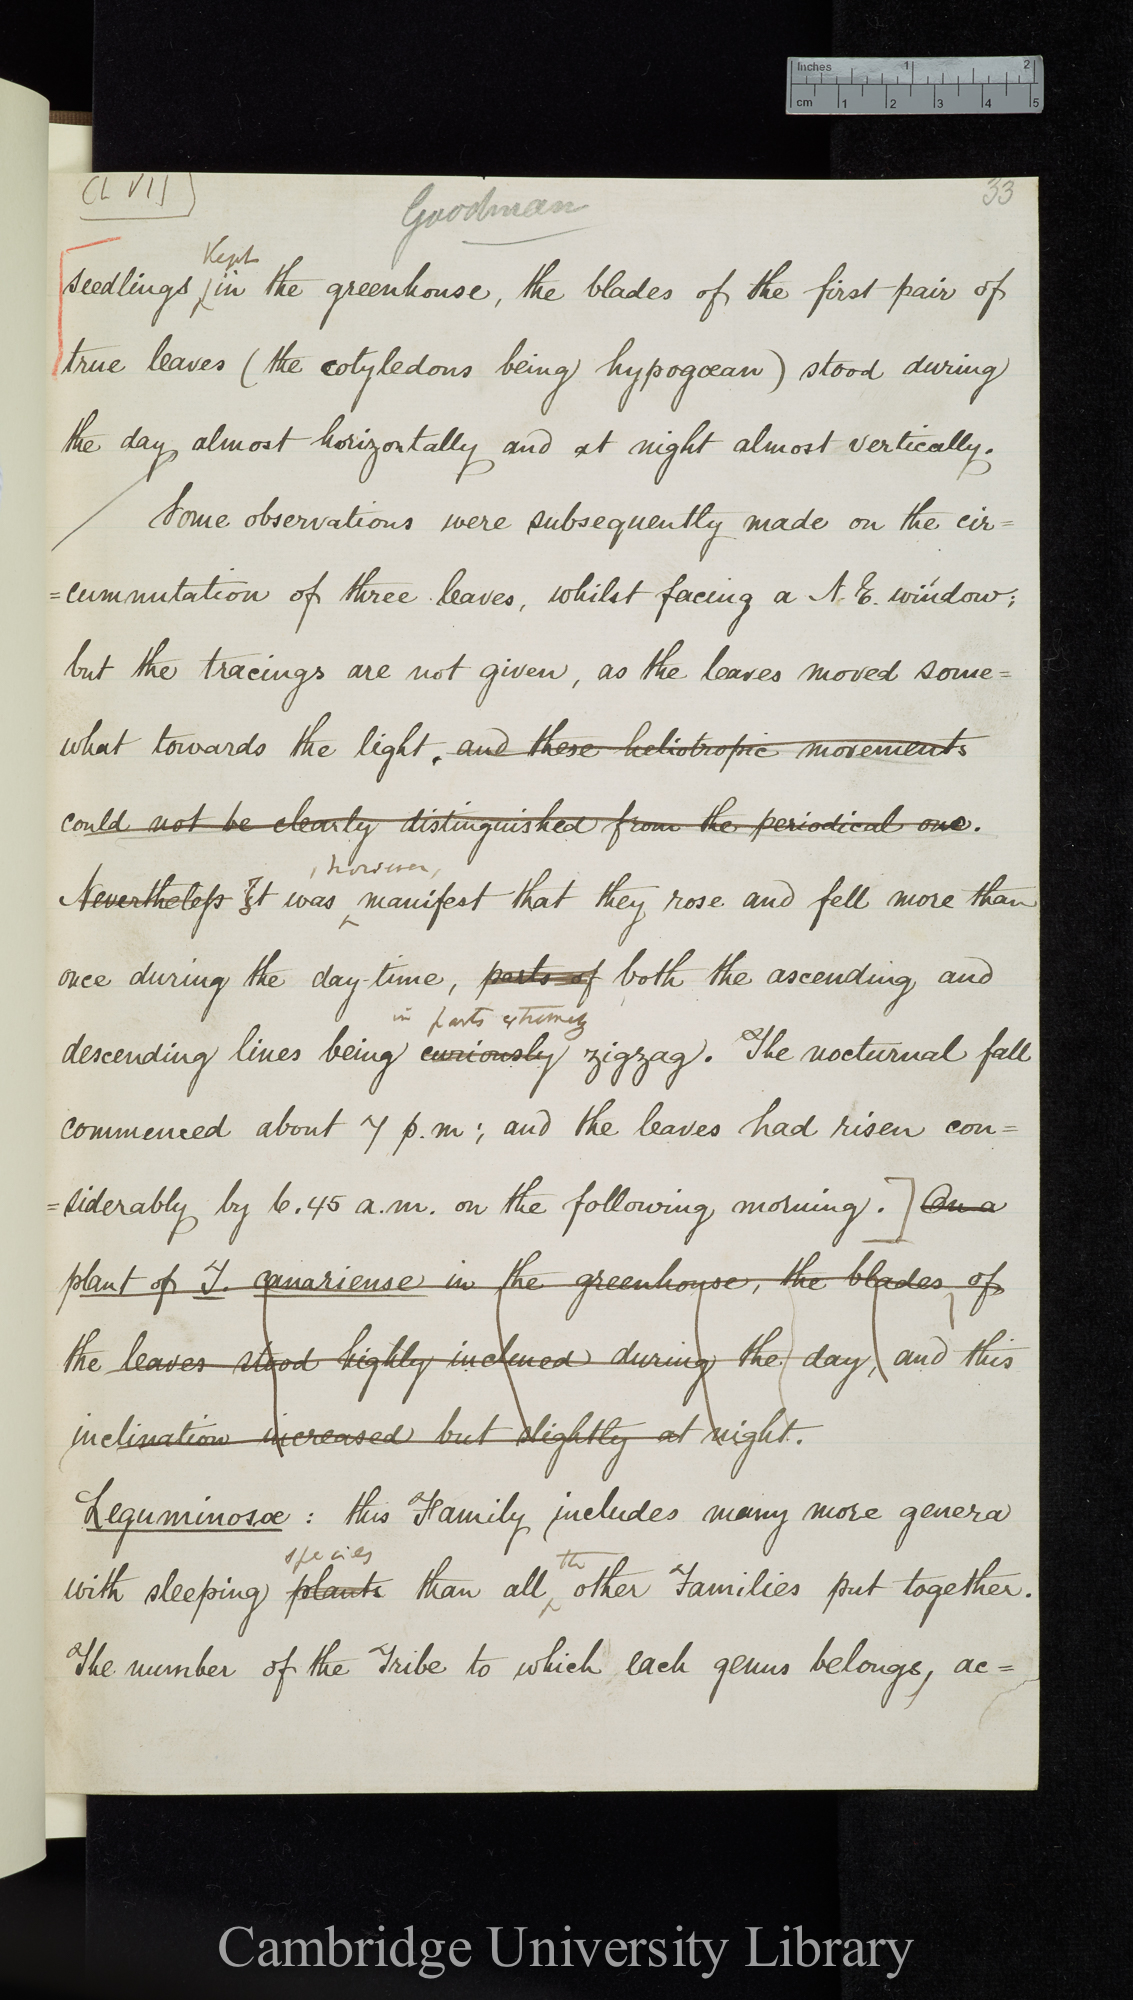 Inches 1 2
cm 1 2 3 4 5
(LVI)
Goodman
33
kept
seedlings in the greenhouse, the blades of the first pair of
true leaves (the cotyledons being hypogœan) stood during
the day almost horizontally and at night almost vertically.
Some observations were subsequently made on the cir=
=cumnutation of three leaves, whilst facing a N.E. window;
but the tracings are not given, as the leaves moved some=
what towards the light. and these heliotropic movements
could not be clearly distinguished from the periodical one.
, however,
Nevertheless It was manifest that they rose and fell more than
once during the day-time, parts of both the ascending and
in parts extremely
descending lines being curiously zigzag. The nocturnal fall
commenced about 7 p.m; and the leaves had risen con=
=siderably by 6.45 a.m. on the following morning.] On a
plant of T. canariense in the greenhouse, the blades of
the leaves stood highly inclined during the day, and this
inclination increased but slightly at night.
Leguminosæ : this Family includes many more genera
species the
with sleeping plants than all other Families put together.
The number of the Tribe to which each genus belongs, ac=
Cambridge University Library